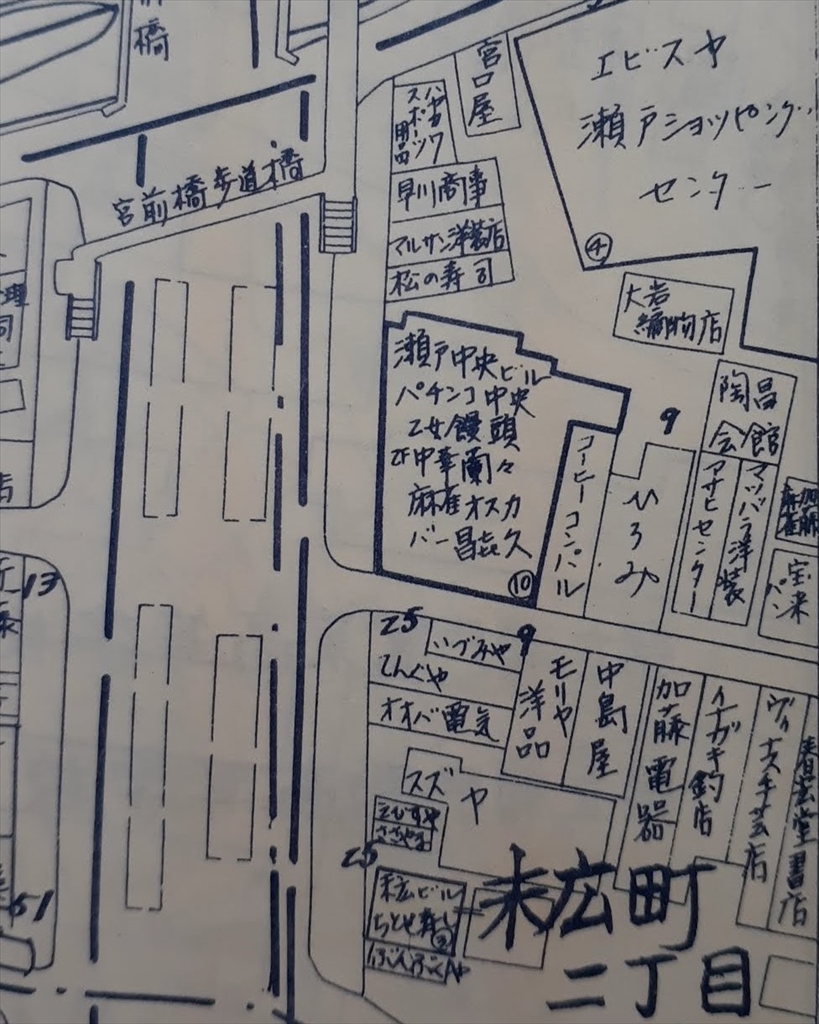 橋
宮前橋歩道橋
宮口屋
ハヤカワ
スポーツ
用品
早川商事
マルサン洋装店
松の寿司
エビスヤ
瀬戸ショッピング
センター
④
大岩
編物店
瀬戸中央ビル
パチンコ中央
乙女饅頭
2F中華蘭々
麻雀オスカ
バー昌㐂久
⑩
コーヒーコンパル
ひろみ
9
陶昌
会館
アサヒセンター
マツバラ洋装
麻雀
宝来
パン
店
13
25
いづみや
9
てんぐや
オオバ電気
モリヤ
洋品
中島屋
加藤電器
イナガキ釣店
ヴィナスキサ店
春云堂書店
スズヤ
えびすや
ささやま
25
末広ビル
ちとせ寿し
ぶんぶくや
末広町
二丁目
51